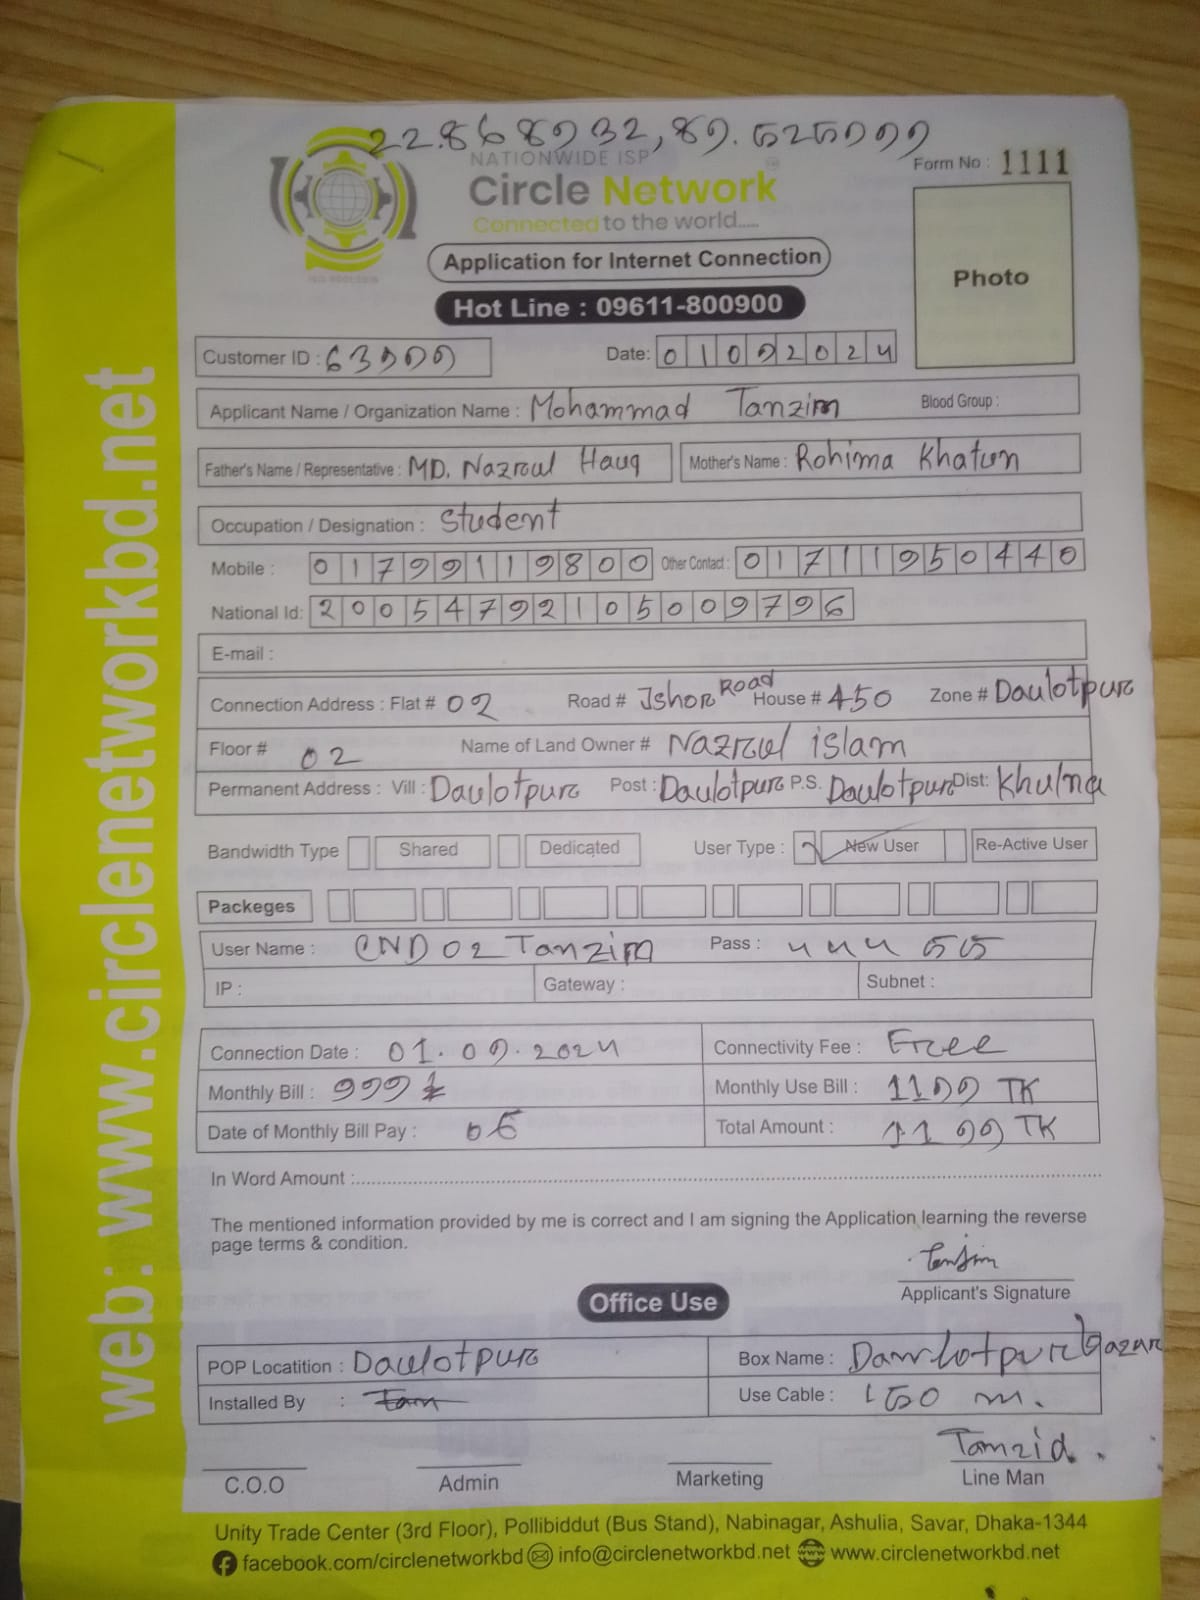 22.868932, 89.525999
NATIONWIDE ISP
Circle Network
Connected to the world.....
Form No : 1111
Application for Internet Connection
Photo
Hot Line : 09611-800900
Customer ID : 63999 Date: 01092024
Applicant Name / Organization Name : Mohammad Tanzim Blood Group :
Father's Name / Representative : MD. Nazrul Hauq Mother's Name : Rohima Khatun
Occupation / Designation : Student
Mobile : 01799119800 Other Contact : 01711950440
National Id: 20054792105009796
E-mail :
Connection Address : Flat # 02 Road # Jshor Road House # 450 Zone # Daulotpur
Floor # 02 Name of Land Owner # Nazrul islam
Permanent Address : Vill : Daulotpur Post : Daulotpur P.S. Daulotpur Dist: Khulna
Bandwidth Type Shared Dedicated User Type : New User Re-Active User
Packeges
User Name : CND02Tanzim Pass : uuu 55
IP : Gateway : Subnet :
Connection Date : 01.09.2024 Connectivity Fee : Free
Monthly Bill : 999 Monthly Use Bill : 1199 TK
Date of Monthly Bill Pay : 05 Total Amount : 1199 TK
In Word Amount :
The mentioned information provided by me is correct and I am signing the Application learning the reverse
page terms & condition.
Tanzim
Applicant's Signature
Office Use
POP Locatition : Daulotpur Box Name : Daulotpur bazar
Installed By : Use Cable : 150 m.
Tamzid.
C.O.O Admin Marketing Line Man
Unity Trade Center (3rd Floor), Pollibiddut (Bus Stand), Nabinagar, Ashulia, Savar, Dhaka-1344
facebook.com/circlenetworkbd info@circlenetworkbd.net www.circlenetworkbd.net
web: www.circlenetworkbd.net